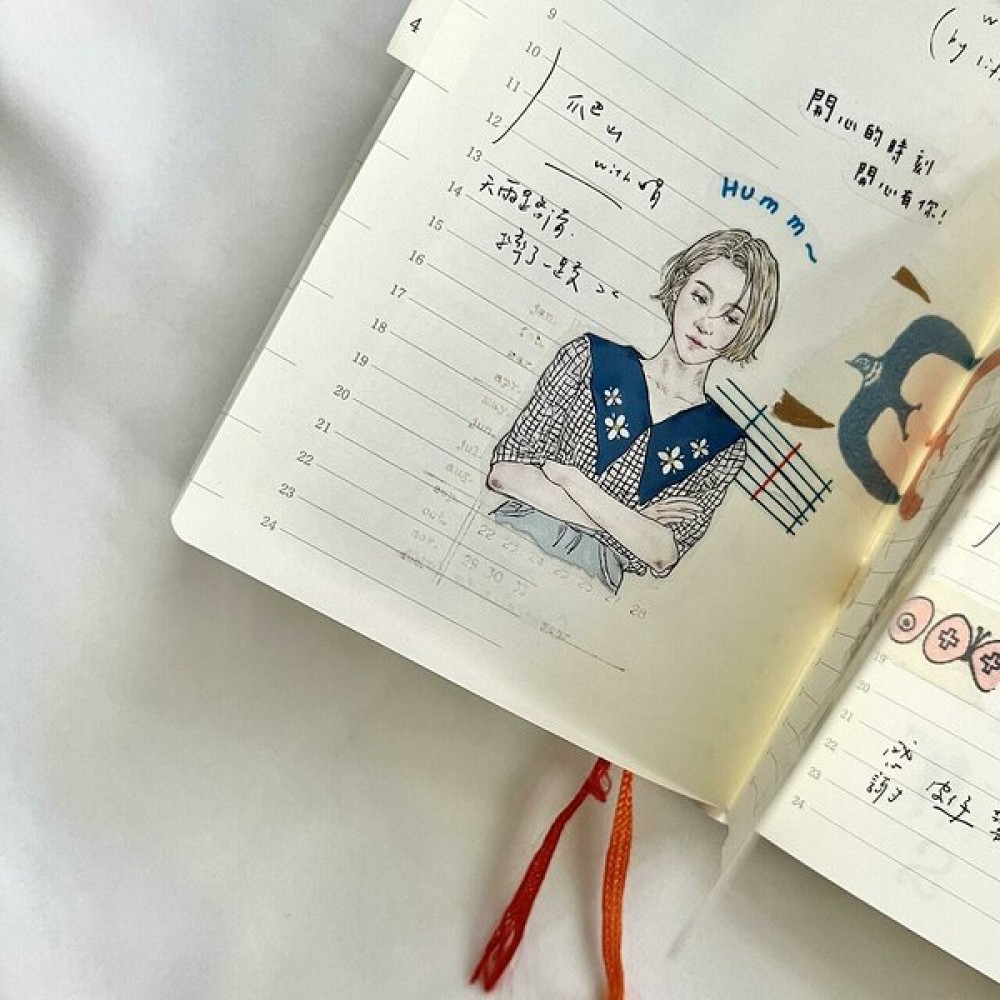 4
9
10
11
12
13
14
15
16
17
18
19
20
21
22
23
24
爬山
with
天雨路滑.
摔了一跤 ><
(by
開心的時刻
開心有你!
HUMM~
jan.
apr.
jun.
jul.
aug.
sep.
oct.
nov.
22 23 24 25 26 27 28
29 30
19
20
21
22
23
24
感
謝